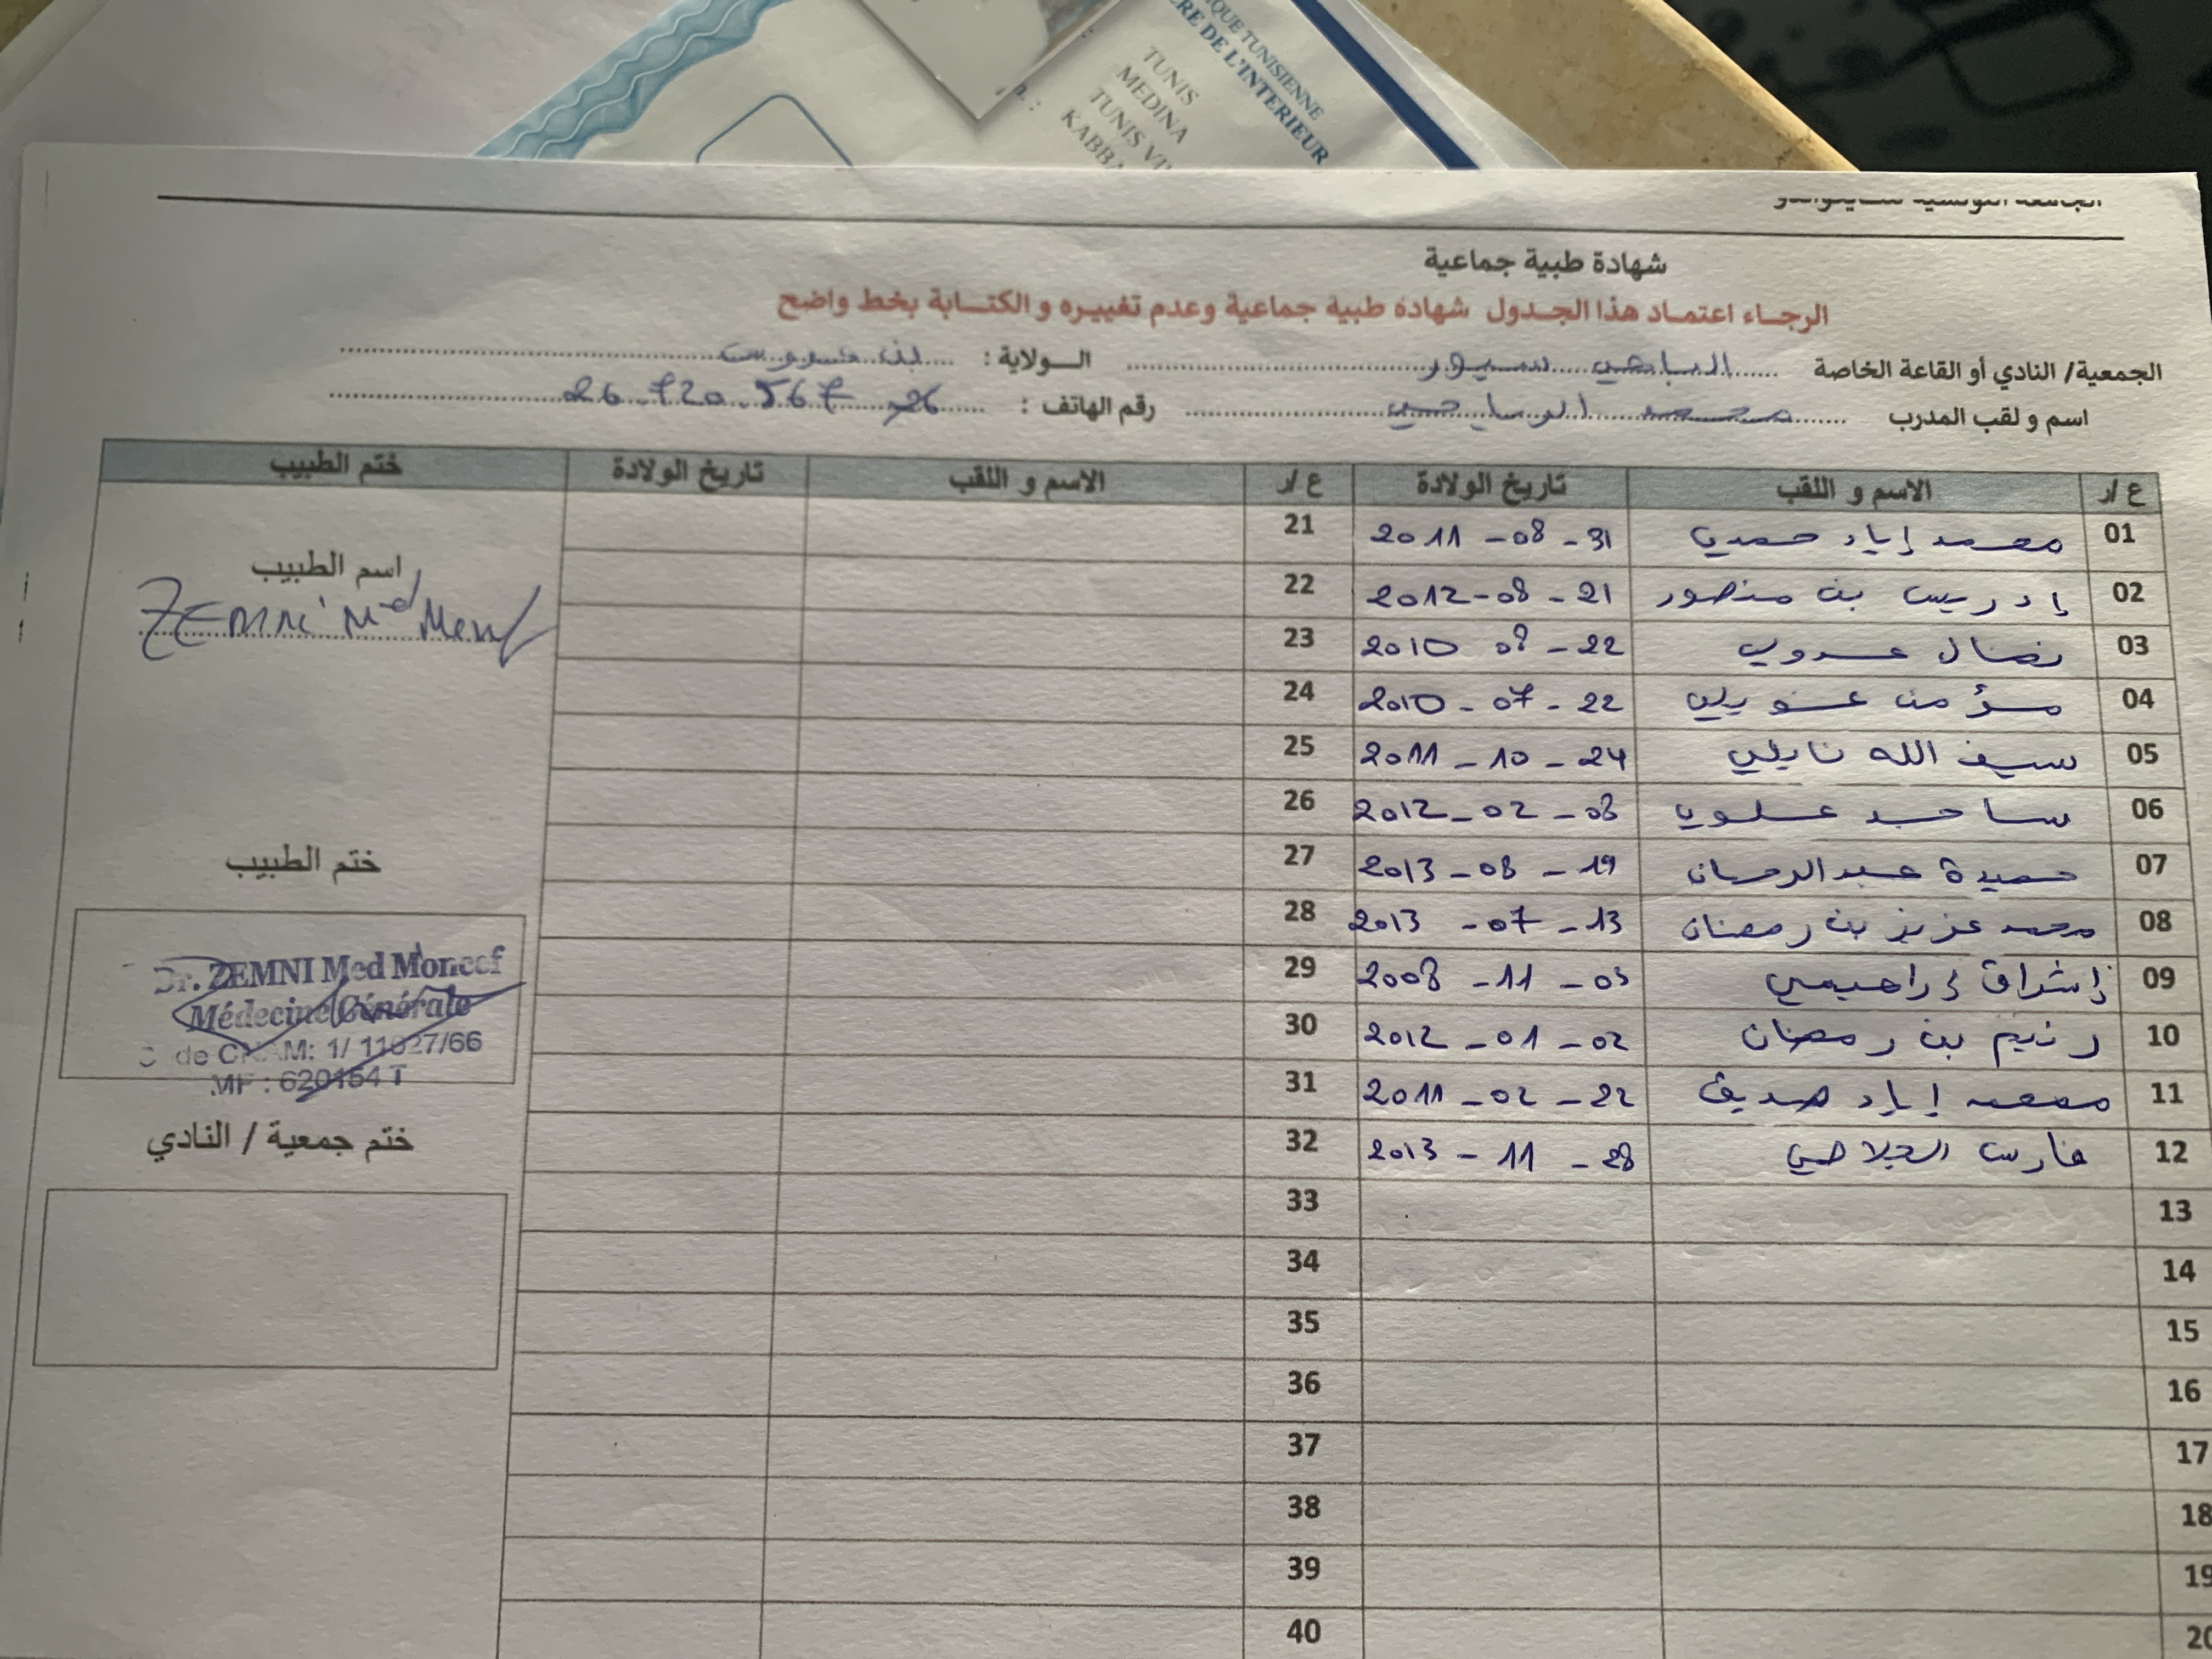 TUNISIENNE
RE DE L'INTERIEUR
TUNIS
MEDINA
TUNIS
شهادة طبية جماعية
الرجاء اعتماد هذا الجدول شهادة طبية جماعية وعدم تغييره و الكتابة بخط واضح
الجمعية/ النادي أو القاعة الخاصة الولاية : بن عروس
اسم و لقب المدرب رقم الهاتف : 26.720.567
ع/ر الاسم و اللقب تاريخ الولادة ع/ر الاسم و اللقب تاريخ الولادة ختم الطبيب
01 محمد إياد حمدي 2011-08-31 21
02 إدريس بن منصور 2012-08-21 22
03 نضال 2010 08-22 23
04 مؤمن 2010-07-22 24
05 سيف الله نايلي 2011-10-24 25
06 علوي 2012-02-08 26
07 حميدة 2013-08-19 27
08 محمد عزيز بن رمضان 2013-07-13 28
09 إشراق 2008-11-03 29
10 رنيم بن رمضان 2012-01-02 30
11 محمد إياد صديق 2011-02-22 31
12 فارس 2013-11-28 32
13 33
14 34
15 35
16 36
17 37
18 38
19 39
20 40
اسم الطبيب
ZEMNI Med
ختم الطبيب
Dr. ZEMNI Med Moncef
Médecine Générale
Code CNAM: 1/ 11027/66
MF : 620154 T
ختم جمعية / النادي